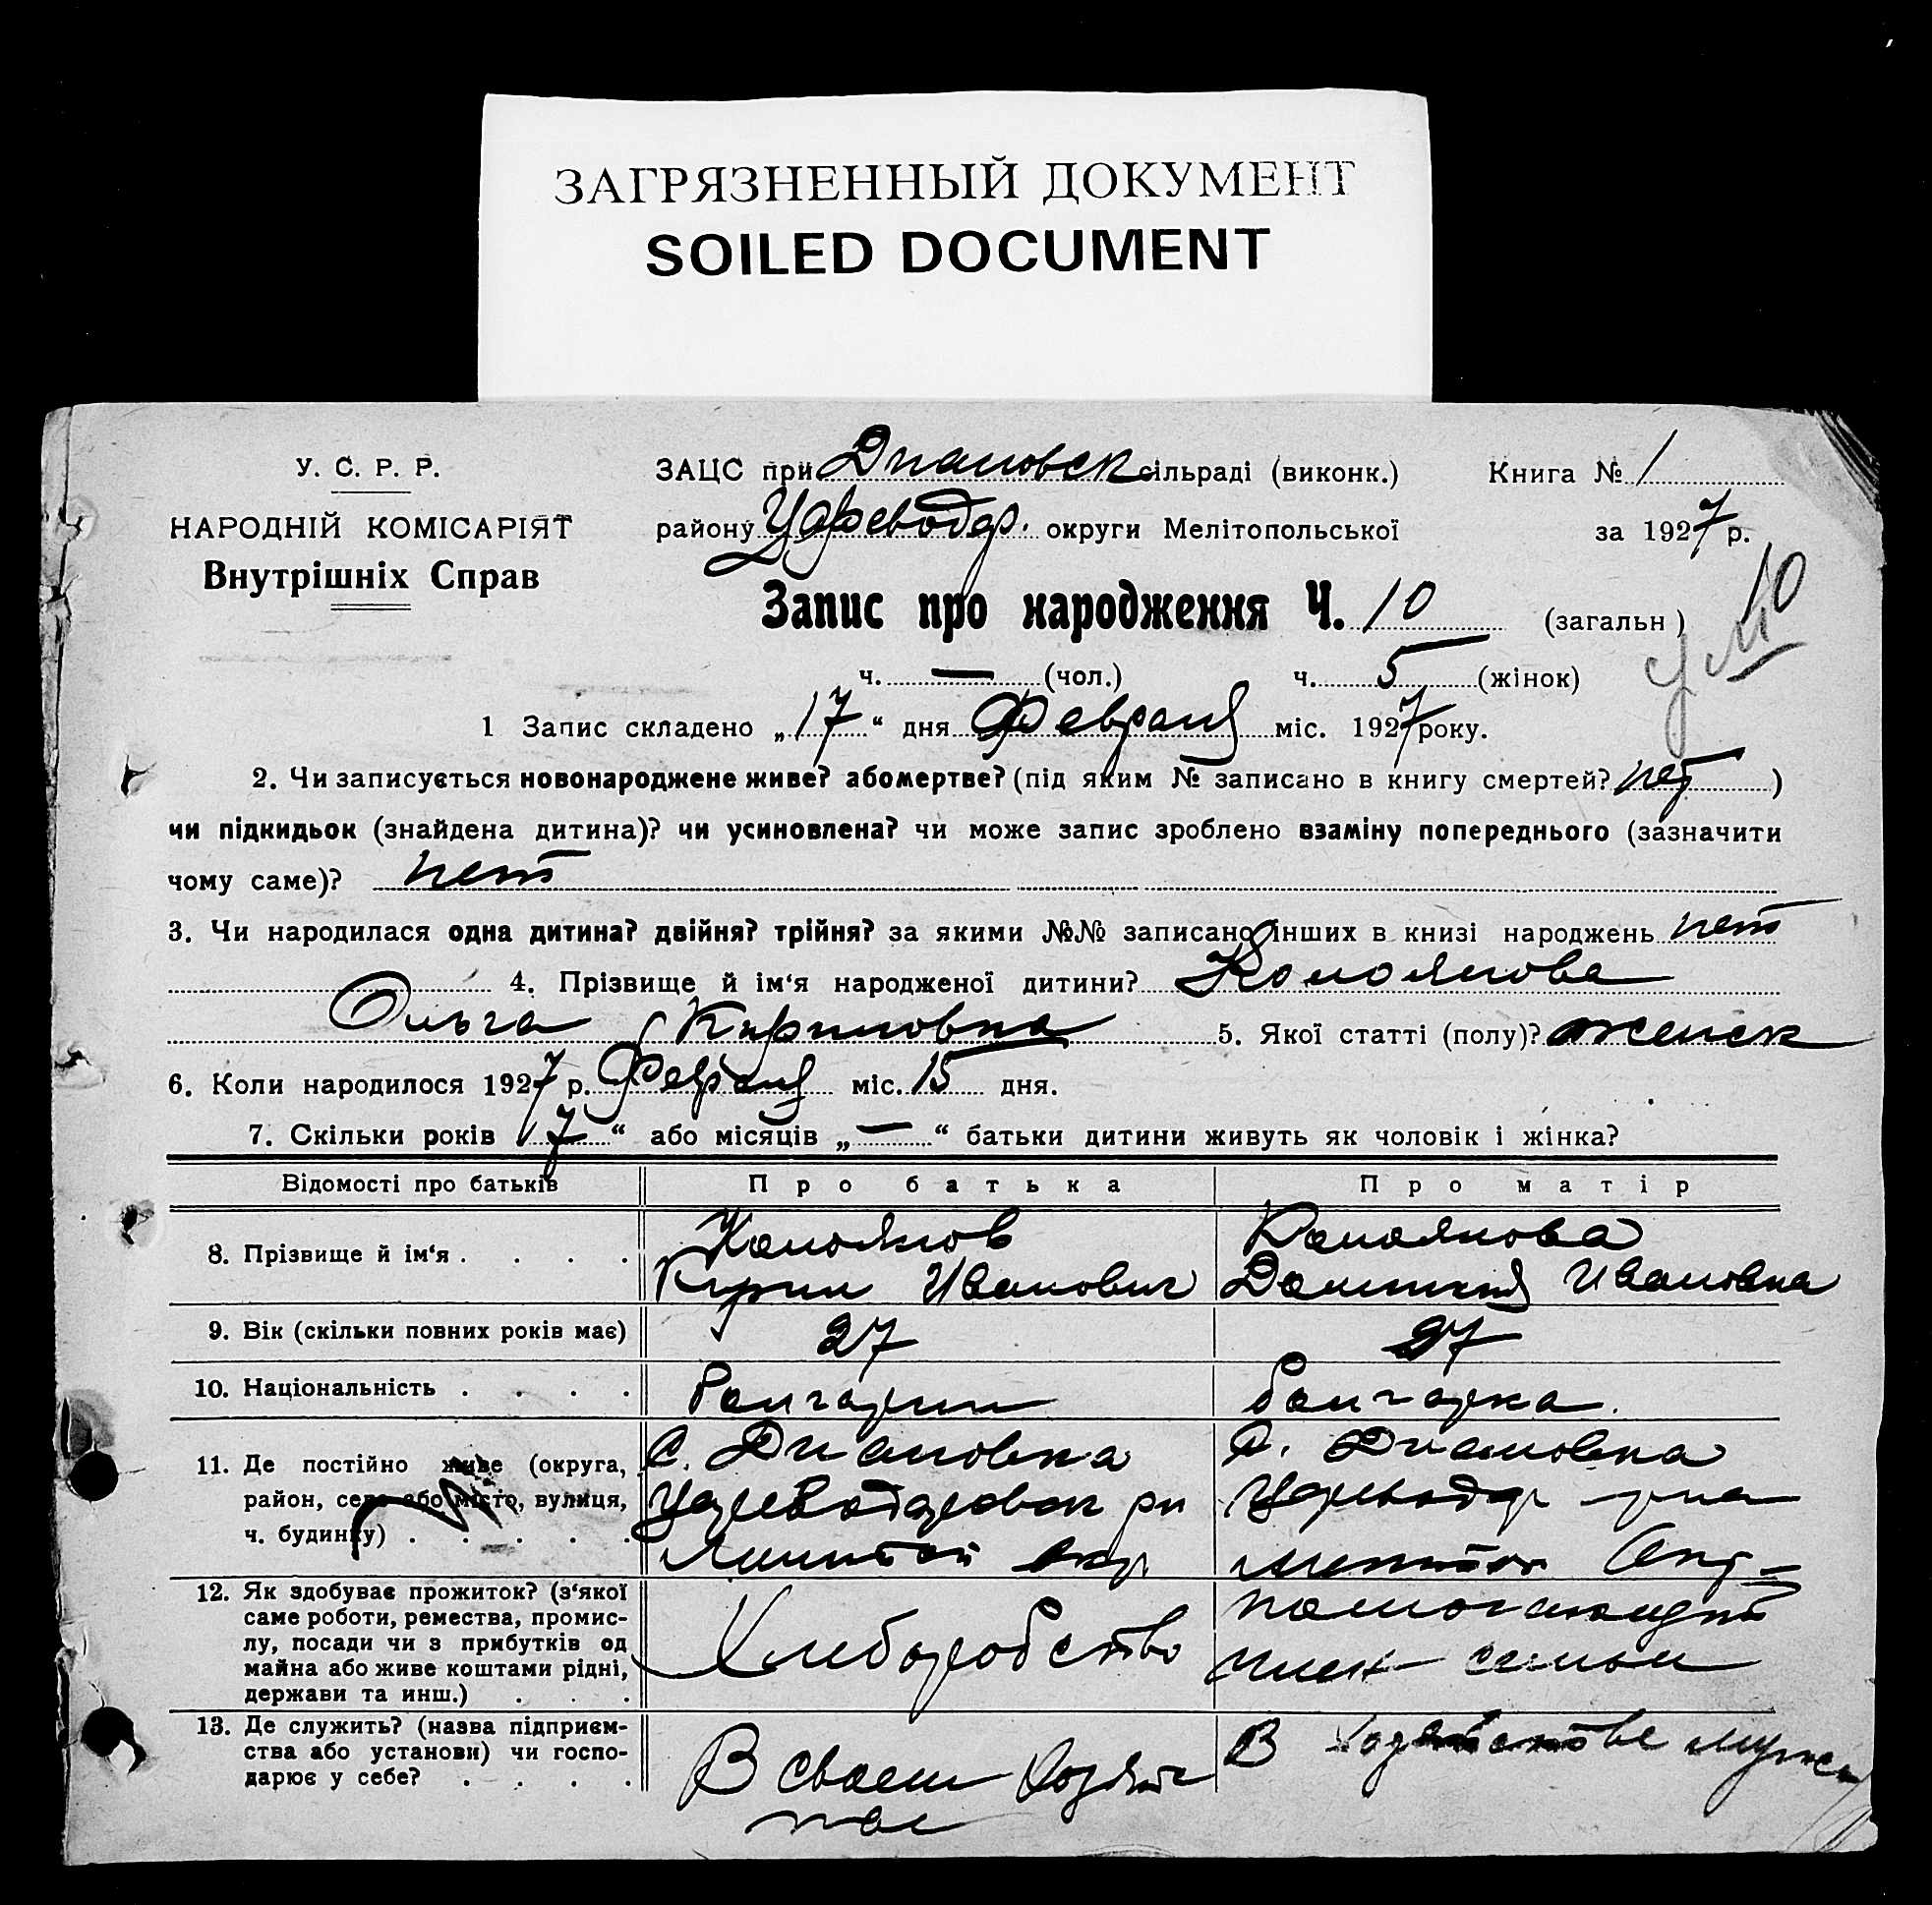 ЗАГРЯЗНЕННЫЙ ДОКУМЕНТ
SOILED DOCUMENT
У. С. Р. Р.
НАРОДНІЙ КОМІСАРІЯТ
Внутрішніх Справ
ЗАЦС при Диановск сільраді (виконк.) Книга № 1
району Цареводар. округи Мелітопольської за 1927 р.
Запис про народження Ч. 10 (загальн)
ч. — (чол.) ч. 5 (жінок)
1 Запис складено „17“ дня Февраля міс. 1927 року.
2. Чи записується новонароджене живе? або мертве? (під яким № записано в книгу смертей? нет)
чи підкидьок (знайдена дитина)? чи усиновлена? чи може запис зроблено взаміну попереднього (зазначити
чому саме)? нет
3. Чи народилася одна дитина? двійня? трійня? за якими №№ записано інших в книзі народжень нет
4. Прізвище й ім‘я народженої дитини?
Ольга Кириловна 5. Якої статті (полу)? женск
6. Коли народилося 1927 р. Февраля міс. 15 дня.
7. Скільки років „7“ або місяців „—“ батьки дитини живуть як чоловік і жінка?
Відомості про батьків Про батька Про матір
8. Прізвище й ім‘я . . . .
Кирил Иванович Ивановна
9. Вік (скільки повних років має) 27 27
10. Національність . . . . Болгарин болгарка.
11. Де постійно живе (округа, С. Диановка С. Диановка
район, село або місто, вулиця, Цареводаровск рн Цареводар рна
ч. будинку) . . . . . Мелитоп окр Мелитоп Окр
12. Як здобуває прожиток? (з‘якої
саме роботи, ремества, промис-
лу, посади чи з прибутків од
майна або живе коштами рідні,
держави та инш.) . . . Хлеборобство помогающий
член семьи
13. Де служить? (назва підприєм-
ства або установи) чи госпо-
дарює у себе? . . . . В своем хозяйс
тве В хозяйстве мужа